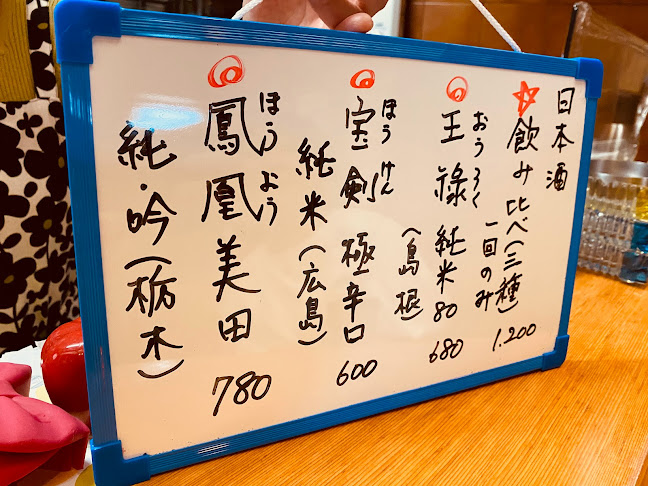 日本酒
☆飲み比べ(三種) 1.200
一回のみ
おうろく
王祿 純米80 680
(島根)
ほうけん
宝剣 極辛口 600
純米(広島)
ほうおう
鳳凰美田 780
純・吟(栃木)